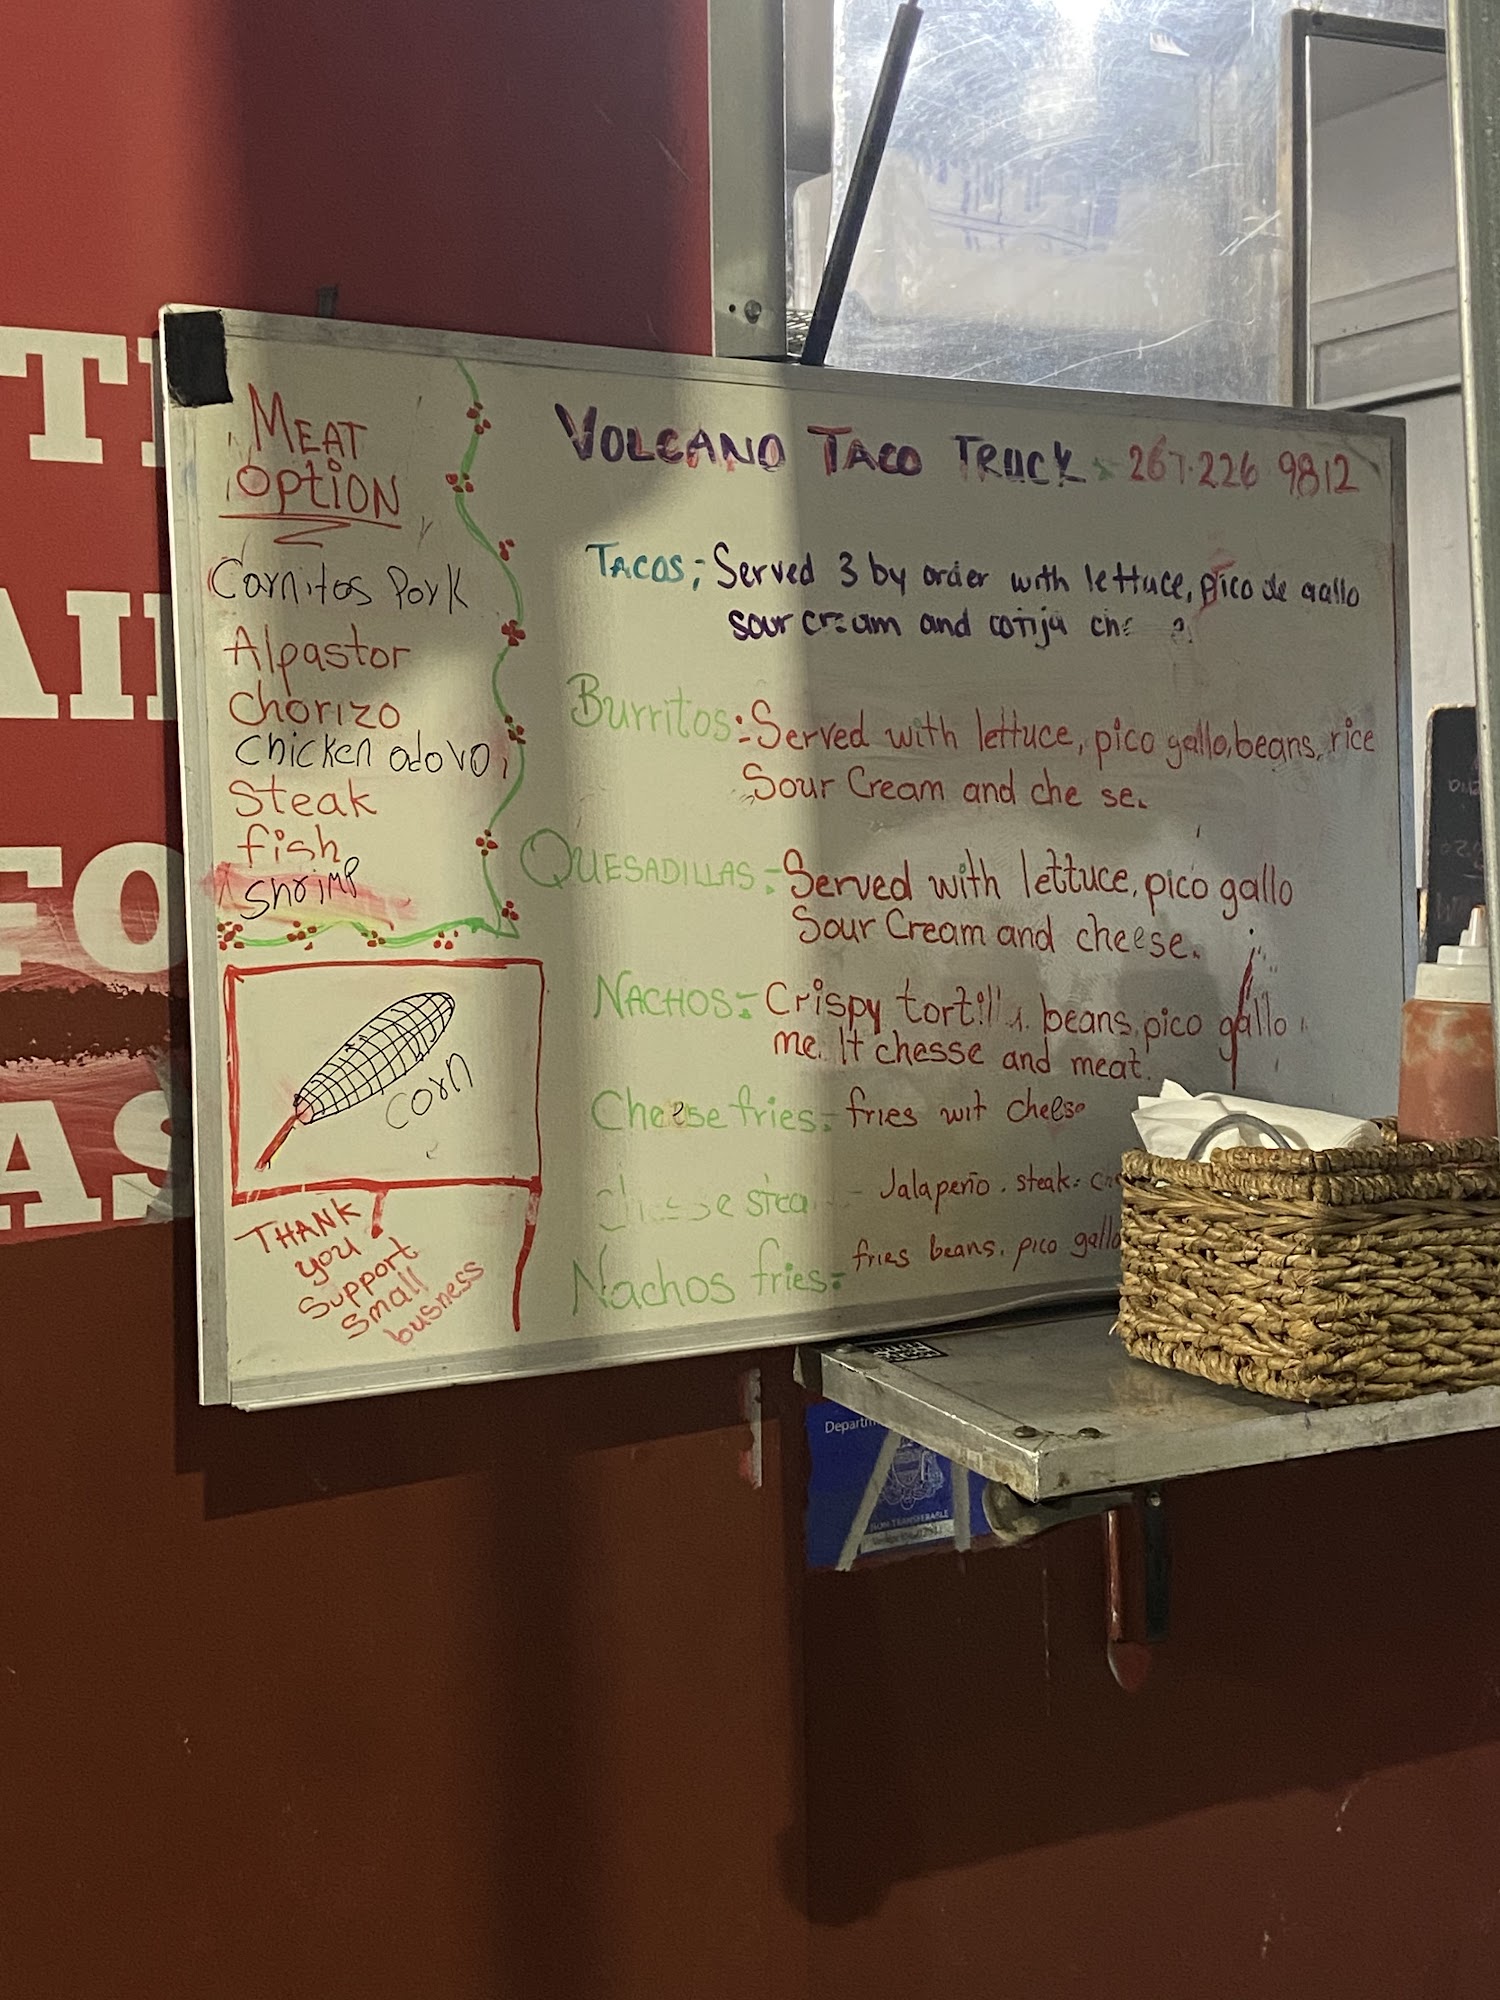 MEAT
OPTION
Carnitas Pork
Alpastor
Chorizo
chicken adovo
Steak
fish
shrimp
corn
THANK
you
Support
Small
business
VOLCANO TACO TRUCK 267.226 9812
TACOS: Served 3 by order with lettuce, pico de gallo
sour cream and cotija
Burritos: Served with lettuce, pico gallo, beans, rice
Sour Cream and che se.
QUESADILLAS: Served with lettuce, pico gallo
Sour Cream and cheese.
NACHOS: Crispy beans, pico gallo
chesse and meat.
Cheese fries: fries wit
Jalapeño. steak.
Nachos fries: fries beans, pico gallo
Departm
NON TRANSFERABLE